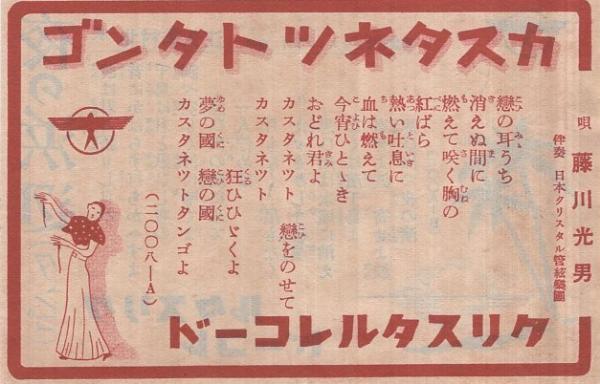 カスタネツトタンゴ
唄 藤川光男
伴奏 日本クリスタル管絃樂團
戀の耳うち
消えぬ間に
燃えて咲く胸の
紅ばら
熱い吐息に
血は燃えて
今宵ひとゝき
おどれ君よ
カスタネツト 戀をのせて
カスタネツト
狂ひひゞくよ
夢の國 戀の國
カスタネツトタンゴよ
(二〇〇八—A)
クリスタルレコード